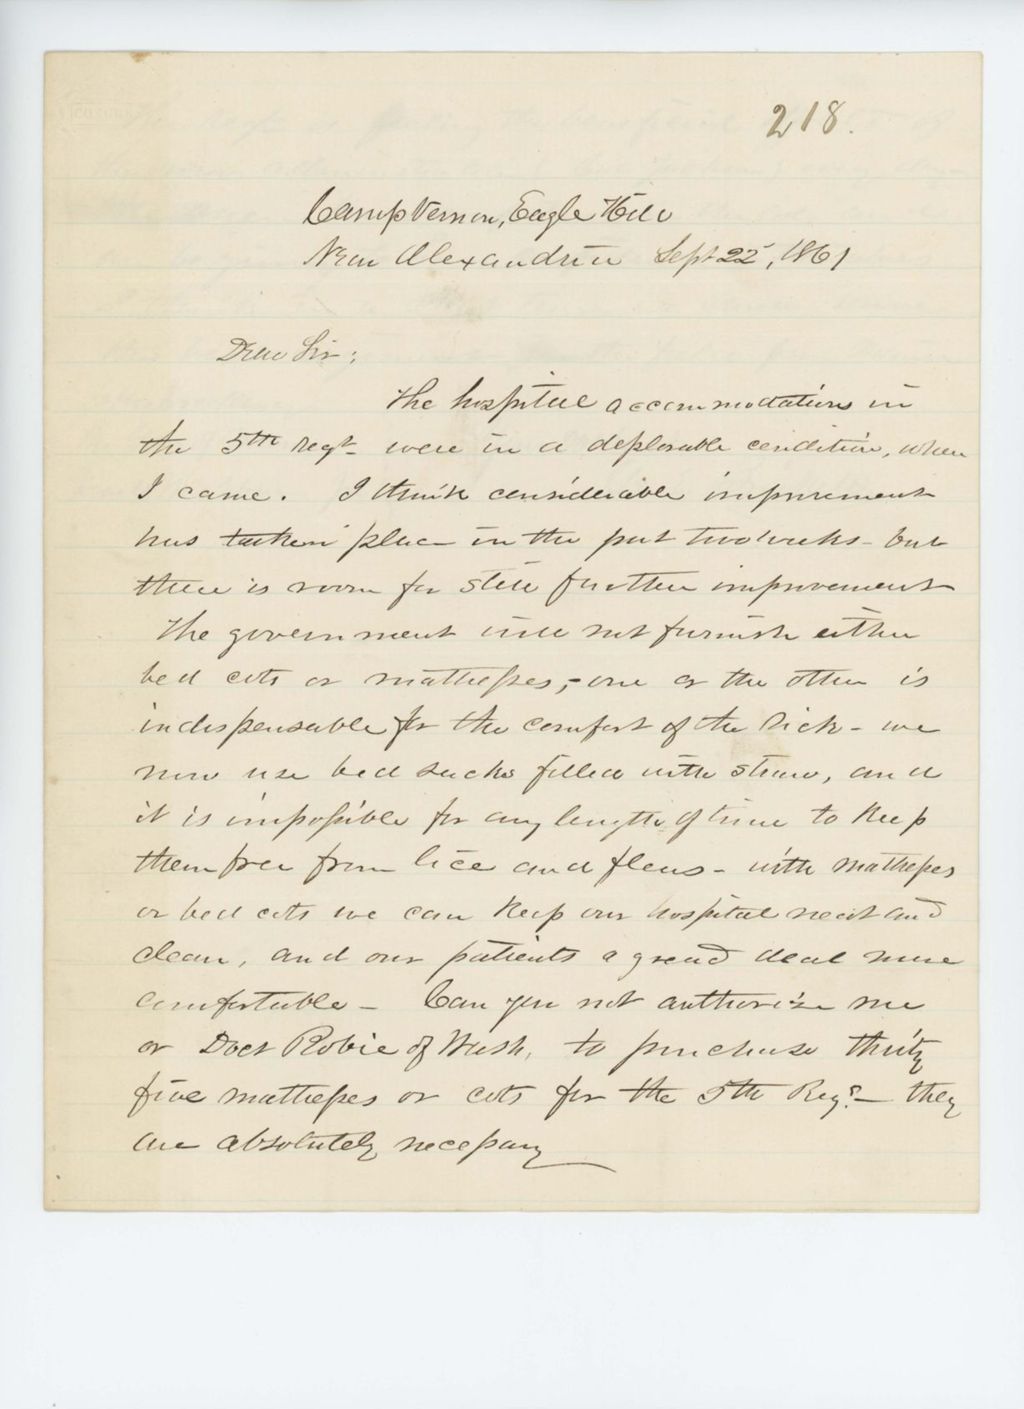 218.
Camp Vernon, Eagle Hill
Near Alexandria Sept 22, 1861
Dear Sir;
The hospital accommodations in
the 5th regt were in a deplorable condition, when
I came. I think considerable improvement
has taken place in the past two weeks - but
there is room for still further improvement
The government will not furnish either
bed cots or mattresses, - one or the other is
indispensable for the comfort of the sick - we
now use bed sacks filled with straw, and
it is impossible for any length of time to keep
them free from lice and fleas - with mattresses
or bed cots we can keep our hospital neat and
clean, and our patients a great deal more
comfortable - Can you not authorize me
or Doct Robie of Wash. to purchase thirty
five mattresses or cots for the 5th Regt - they
are absolutely necessary